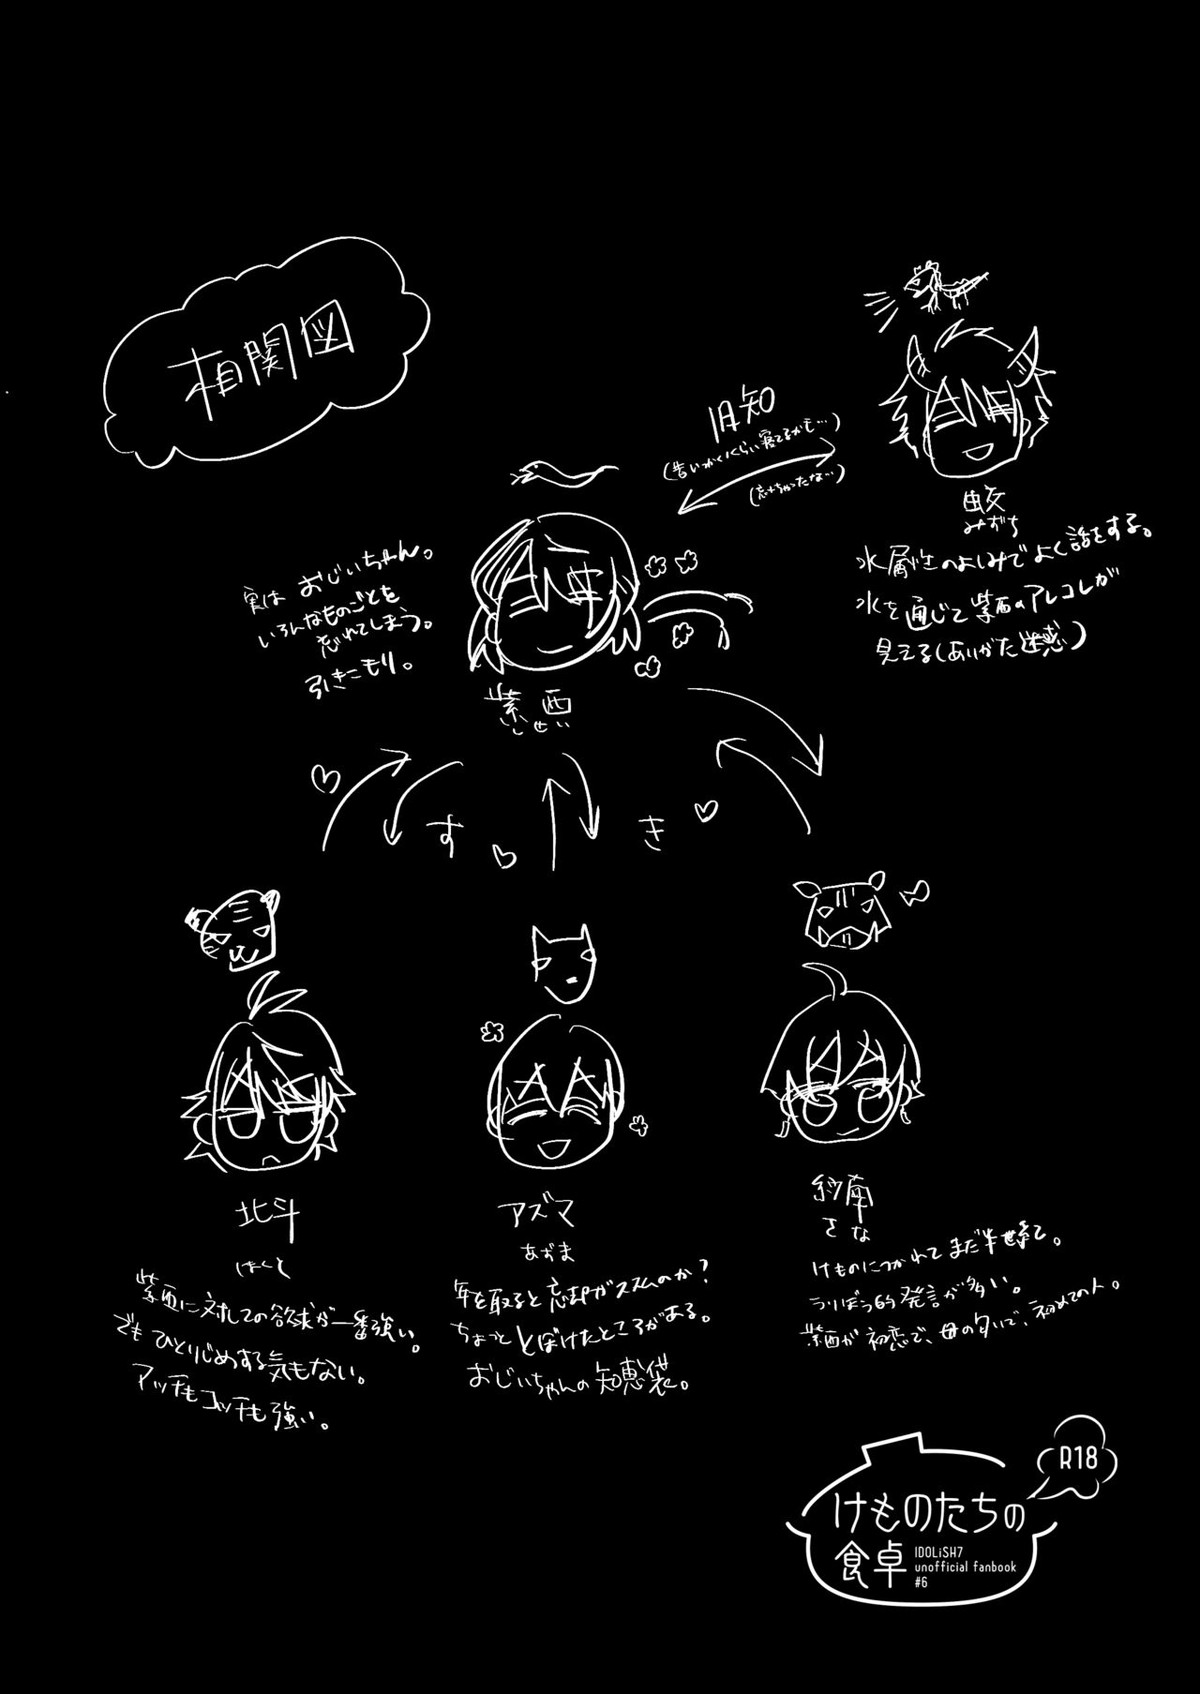 相関図
旧知
(忘れちゃったな…)
蛟
みずち
水属性のよしみでよく話をする。
水を通じて紫西のアレコレが
見えてる(ありがた迷惑)
実はおじいちゃん。
いろんなものごとを
忘れてしまう。
引きこもり。
紫西
しせい
すき
北斗
ほくと
紫西に対しての欲求が一番強い。
でもひとりじめする気もない。
アッチもコッチも強い。
アズマ
あずま
年を取ると忘却がススムのか?
ちょっととぼけたところがある。
おじいちゃんの知恵袋。
紗南
さな
けものにつかれてまだ半世紀。
うりぼう的発言が多い。
紫西が初恋で、母の匂いで、初めての人。
R18
けものたちの
食卓
IDOLiSH7
unofficial fanbook
#6